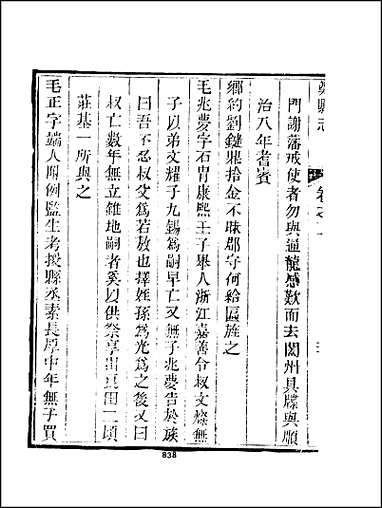 門謝藩戒使者勿與通龍感歎而去閤州具牒與順
治八年耆賓
鄉約劉鍵鼎拾金不昧郡守何給匾旌之
毛兆夢字石冑康熙壬子舉人浙江嘉善令叔文燦無
子以弟文耀子九錫為嗣早亡又無子兆夢告於族
曰吾不忍叔父為若敖也擇姪孫為光為之後又曰
叔亡數年無立錐地嗣者奚以供祭享出負田二頃
莊基一所與之
毛正字端人附例監生考授縣丞素長厚中年無子買
838